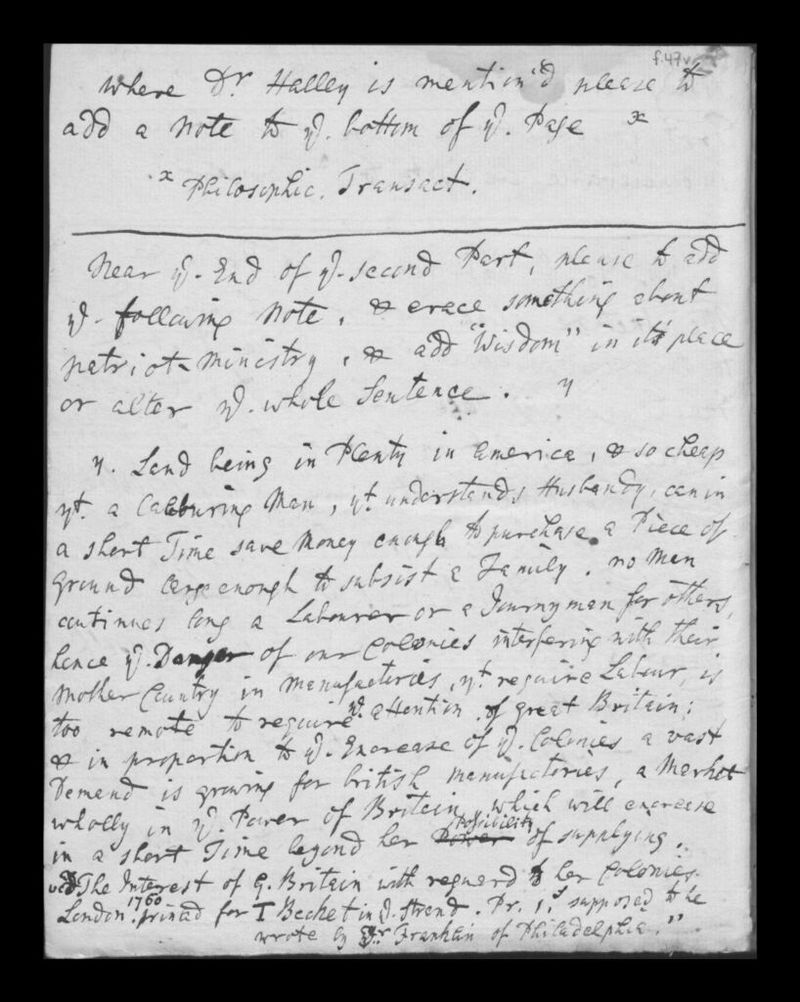 f.47v
where Dr Halley is mention'd please to
add a Note to ye. bottom of ye. Page x
x Philosophic. Transact.
Near ye. End of ye. second Part, please to add
ye. following Note, & erace something about
patriot-Ministry, & add "Wisdom" in its place
or alter ye. whole Sentence. y
y. Land being in Plenty in America, & so cheap
yt. a Labouring Man, yt. understands Husbandy, can in
a short Time save Money enough to purchase a Piece of
ground large enough to subsist a Family. no Man
continues long a Labourer or a Journyman for others,
hence ye. Danger of our Colonies interfering with their
Mother Country in Manufactories, yt. require Labour, is
too remote to require ye. attention of great Britain:
& in proportion to ye. Encrease of ye. Colonies a vast
Demand is growing for british manufactories, a Market
wholly in ye. Power of Britain, which will encrease
in a short Time beyond her Power Possibility of supplying.
vid The Interest of G. Britain with reguard to her Colonies.
London. 1760 printed for T Becket in ye. Strand. Pr. 1,s supposed to be
wrote by Dr. Franklin of Philadelphia."